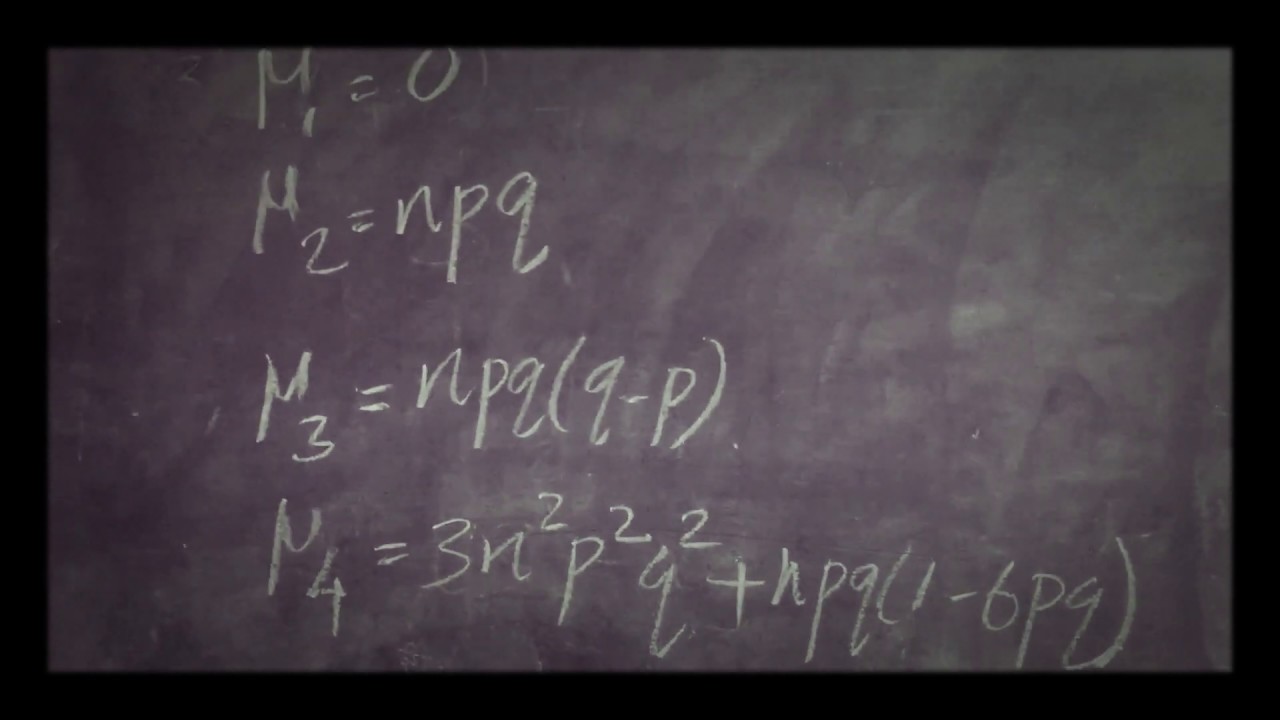 μ₁ = 0
μ₂ = npq
μ₃ = npq(q-p)
μ₄ = 3n²p²q² + npq(1-6pq)